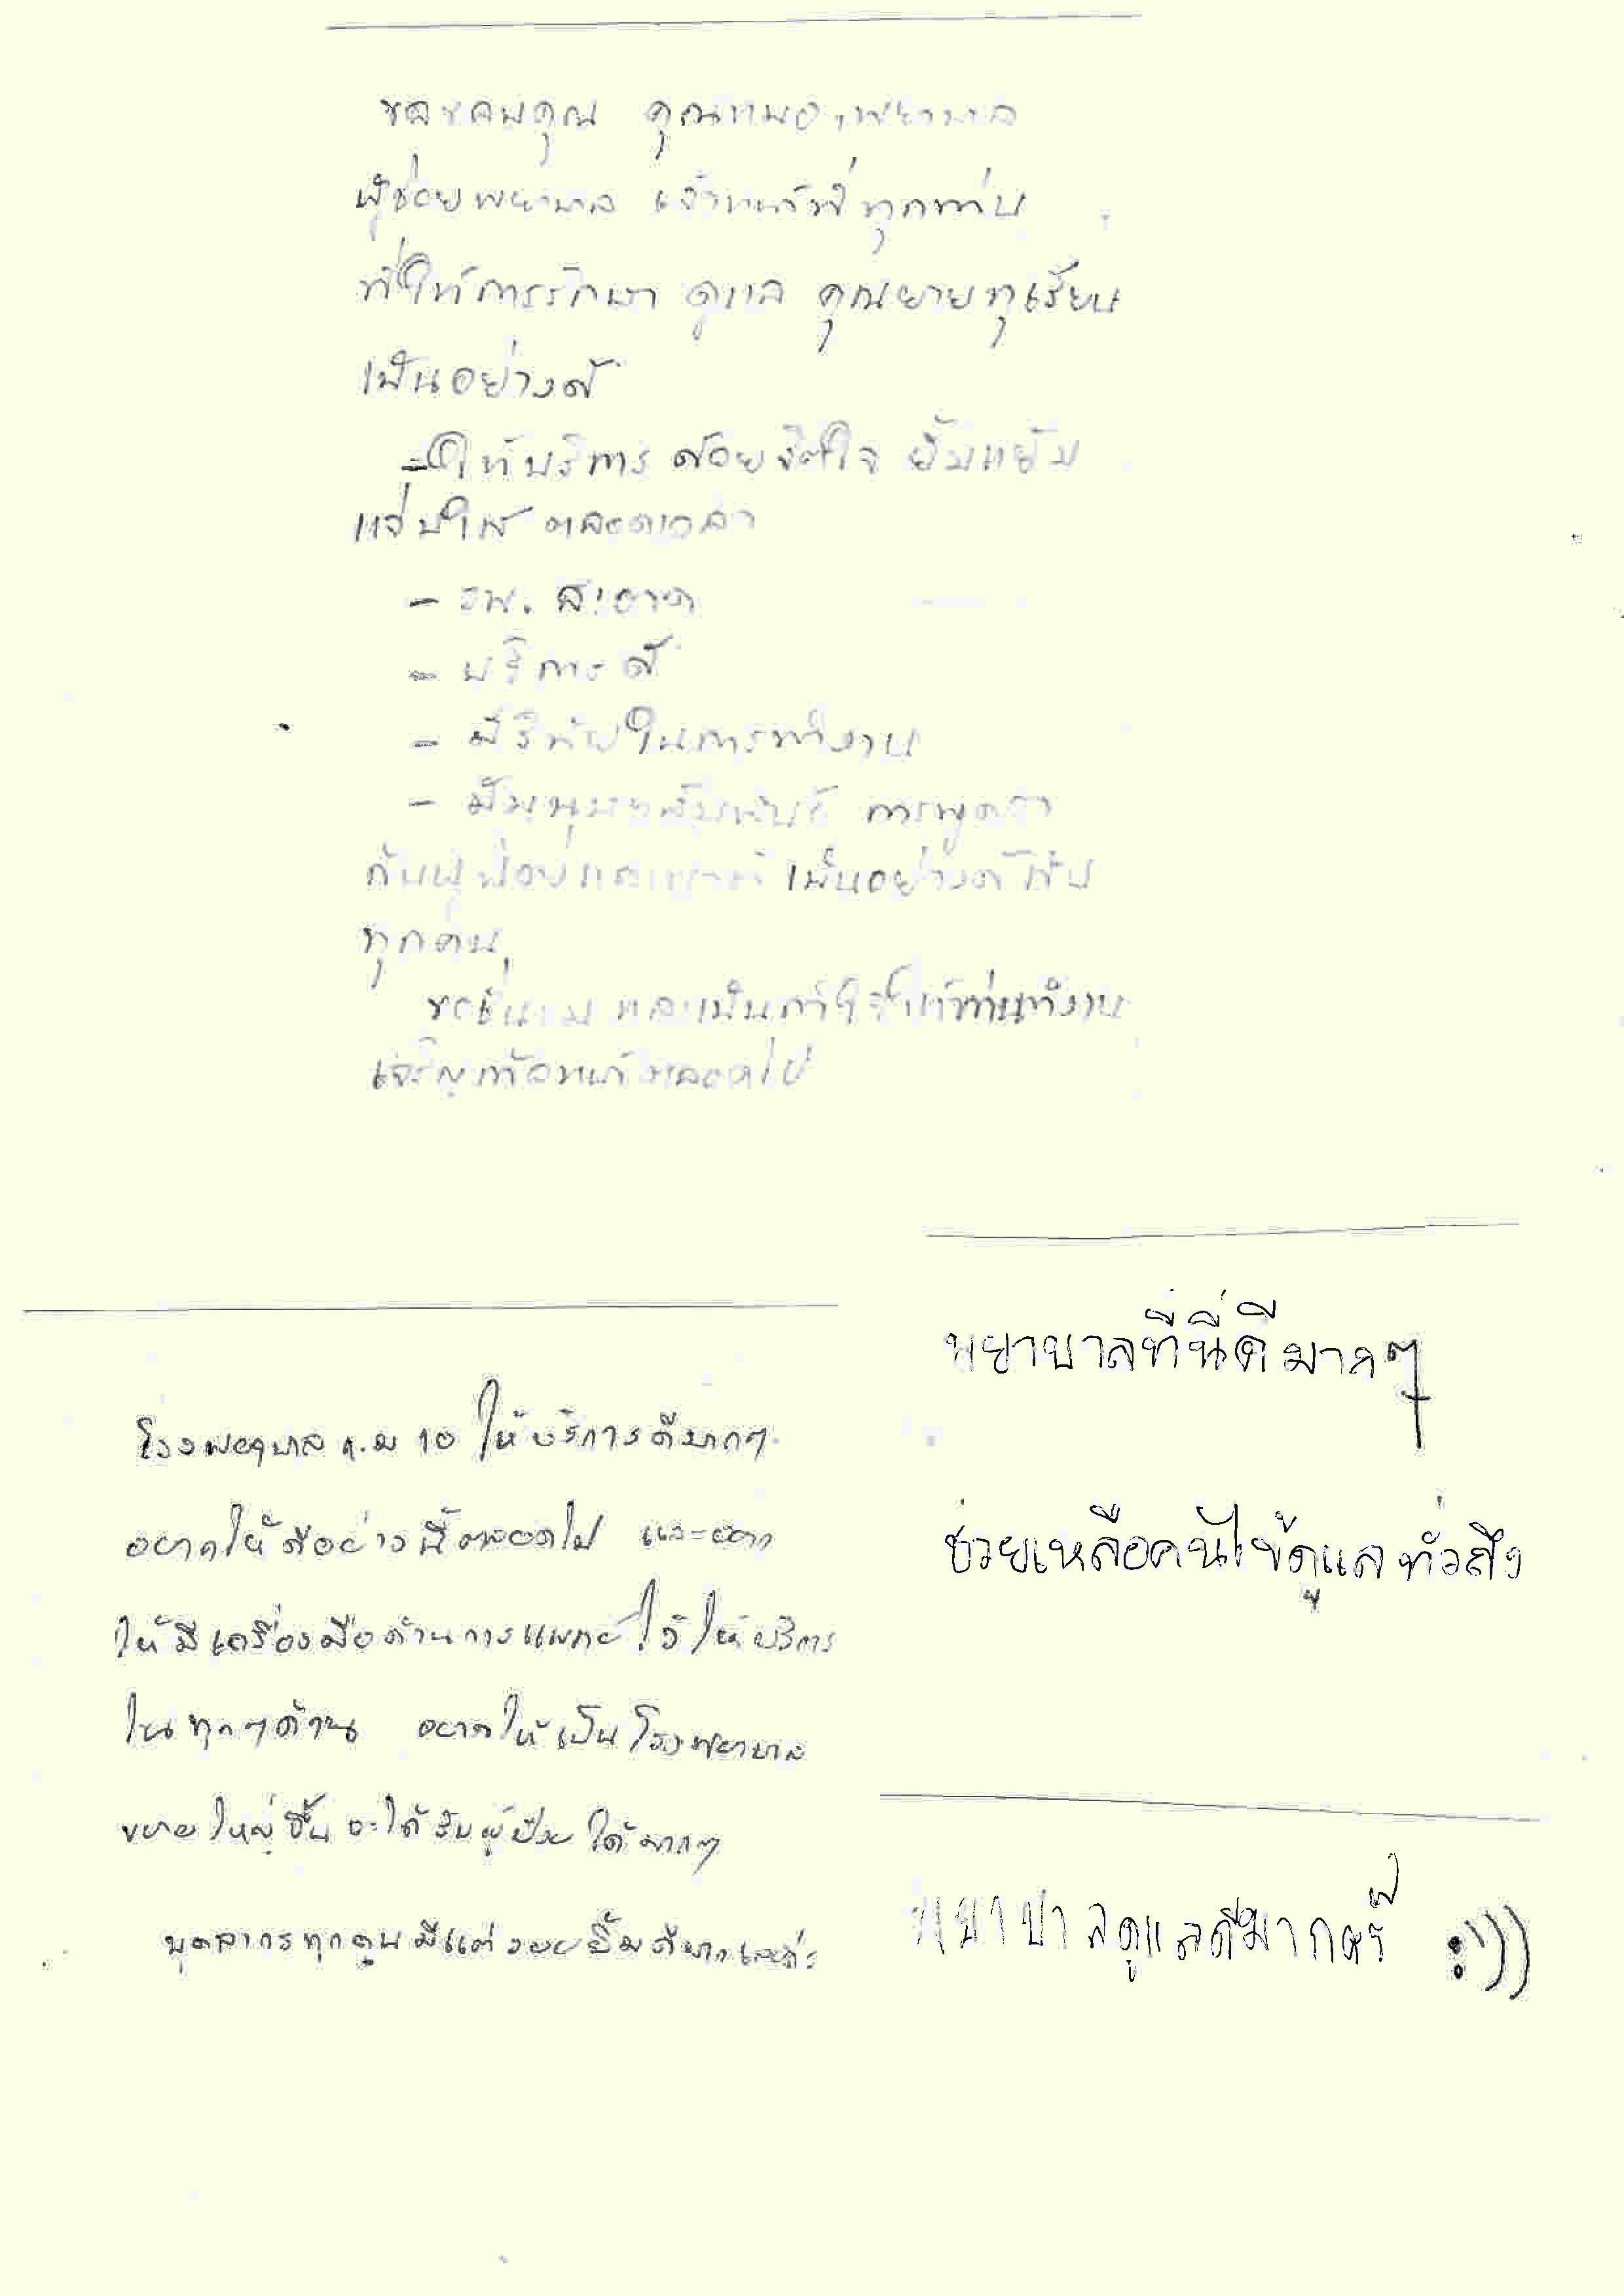 ขอขอบคุณ คุณหมอ, พยาบาล
ผู้ช่วยพยาบาล เจ้าหน้าที่ทุกท่าน
ที่ให้การรักษา ดูแล คุณยายทุเรียน
เป็นอย่างดี
- ให้บริการ ด้วยจิตใจ ยิ้มแย้ม
แจ่มใส ตลอดเวลา
- รพ. สะอาด
- บริการดี
- มีวินัยในการทำงาน
- มีมนุษยสัมพันธ์ การพูดจา
กับผู้ป่วยและญาติ เป็นอย่างดี
ทุกคน
ขอชื่นชม และเป็นกำลังใจให้ท่านทำงาน
เจริญก้าวหน้าตลอดไป
โรงพยาบาล ก.ม 10 ให้บริการดีมากๆ
อยากให้ดีอย่างนี้ตลอดไป และอยาก
ให้มีเครื่องมือด้านการแพทย์ไว้ให้บริการ
ในทุกๆด้าน อยากให้เป็นโรงพยาบาล
ขยายใหญ่ขึ้นจะได้รับผู้ป่วยได้มากๆ
บุคลากรทุกคนมีแต่รอยยิ้มดีมากเลยค่ะ
พยาบาลที่นี่ดีมากๆ
ช่วยเหลือคนไข้ดูแลทั่วถึง
พยาบาลดูแลดีมาก :))